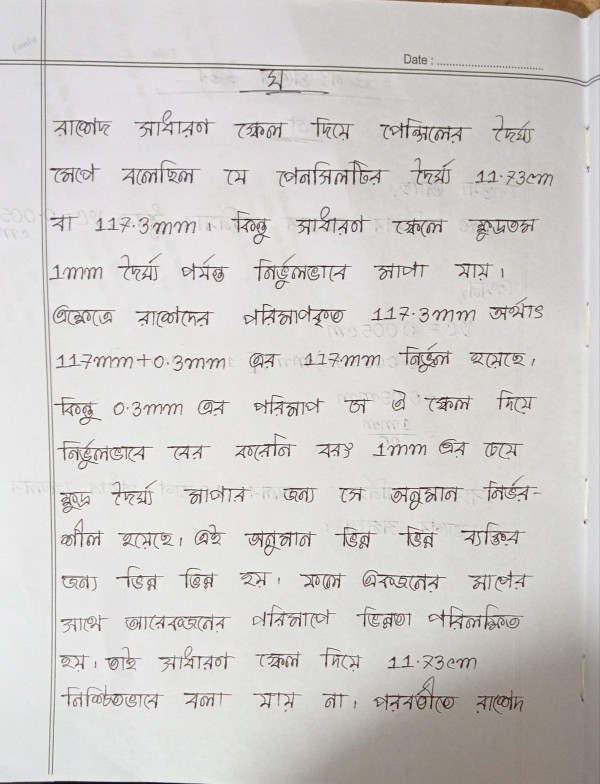 Date : ..............................
ঘ
রাশেদ সাধারণ স্কেল দিয়ে পেন্সিলের দৈর্ঘ্য
মেপে বলেছিল যে পেনসিলটির দৈর্ঘ্য 11.73cm
বা 117.3mm। কিন্তু সাধারণ স্কেলে ক্ষুদ্রতম
1mm দৈর্ঘ্য পর্যন্ত নির্ভুলভাবে মাপা যায়।
এক্ষেত্রে রাশেদের পরিমাপকৃত 117.3mm অর্থাৎ
117mm+0.3mm এর 117mm নির্ভুল হয়েছে,
কিন্তু 0.3mm এর পরিমাপ সে ঐ স্কেল দিয়ে
নির্ভুলভাবে বের করেনি বরং 1mm এর চেয়ে
ক্ষুদ্র দৈর্ঘ্য মাপার জন্য সে অনুমান নির্ভর-
শীল হয়েছে, এই অনুমান ভিন্ন ভিন্ন ব্যক্তির
জন্য ভিন্ন ভিন্ন হয়। ফলে একজনের মাপের
সাথে আরেকজনের পরিমাপে ভিন্নতা পরিলক্ষিত
হয়। তাই সাধারণ স্কেল দিয়ে 11.73cm
নিশ্চিতভাবে বলা যায় না। পরবর্তীতে রাশেদ